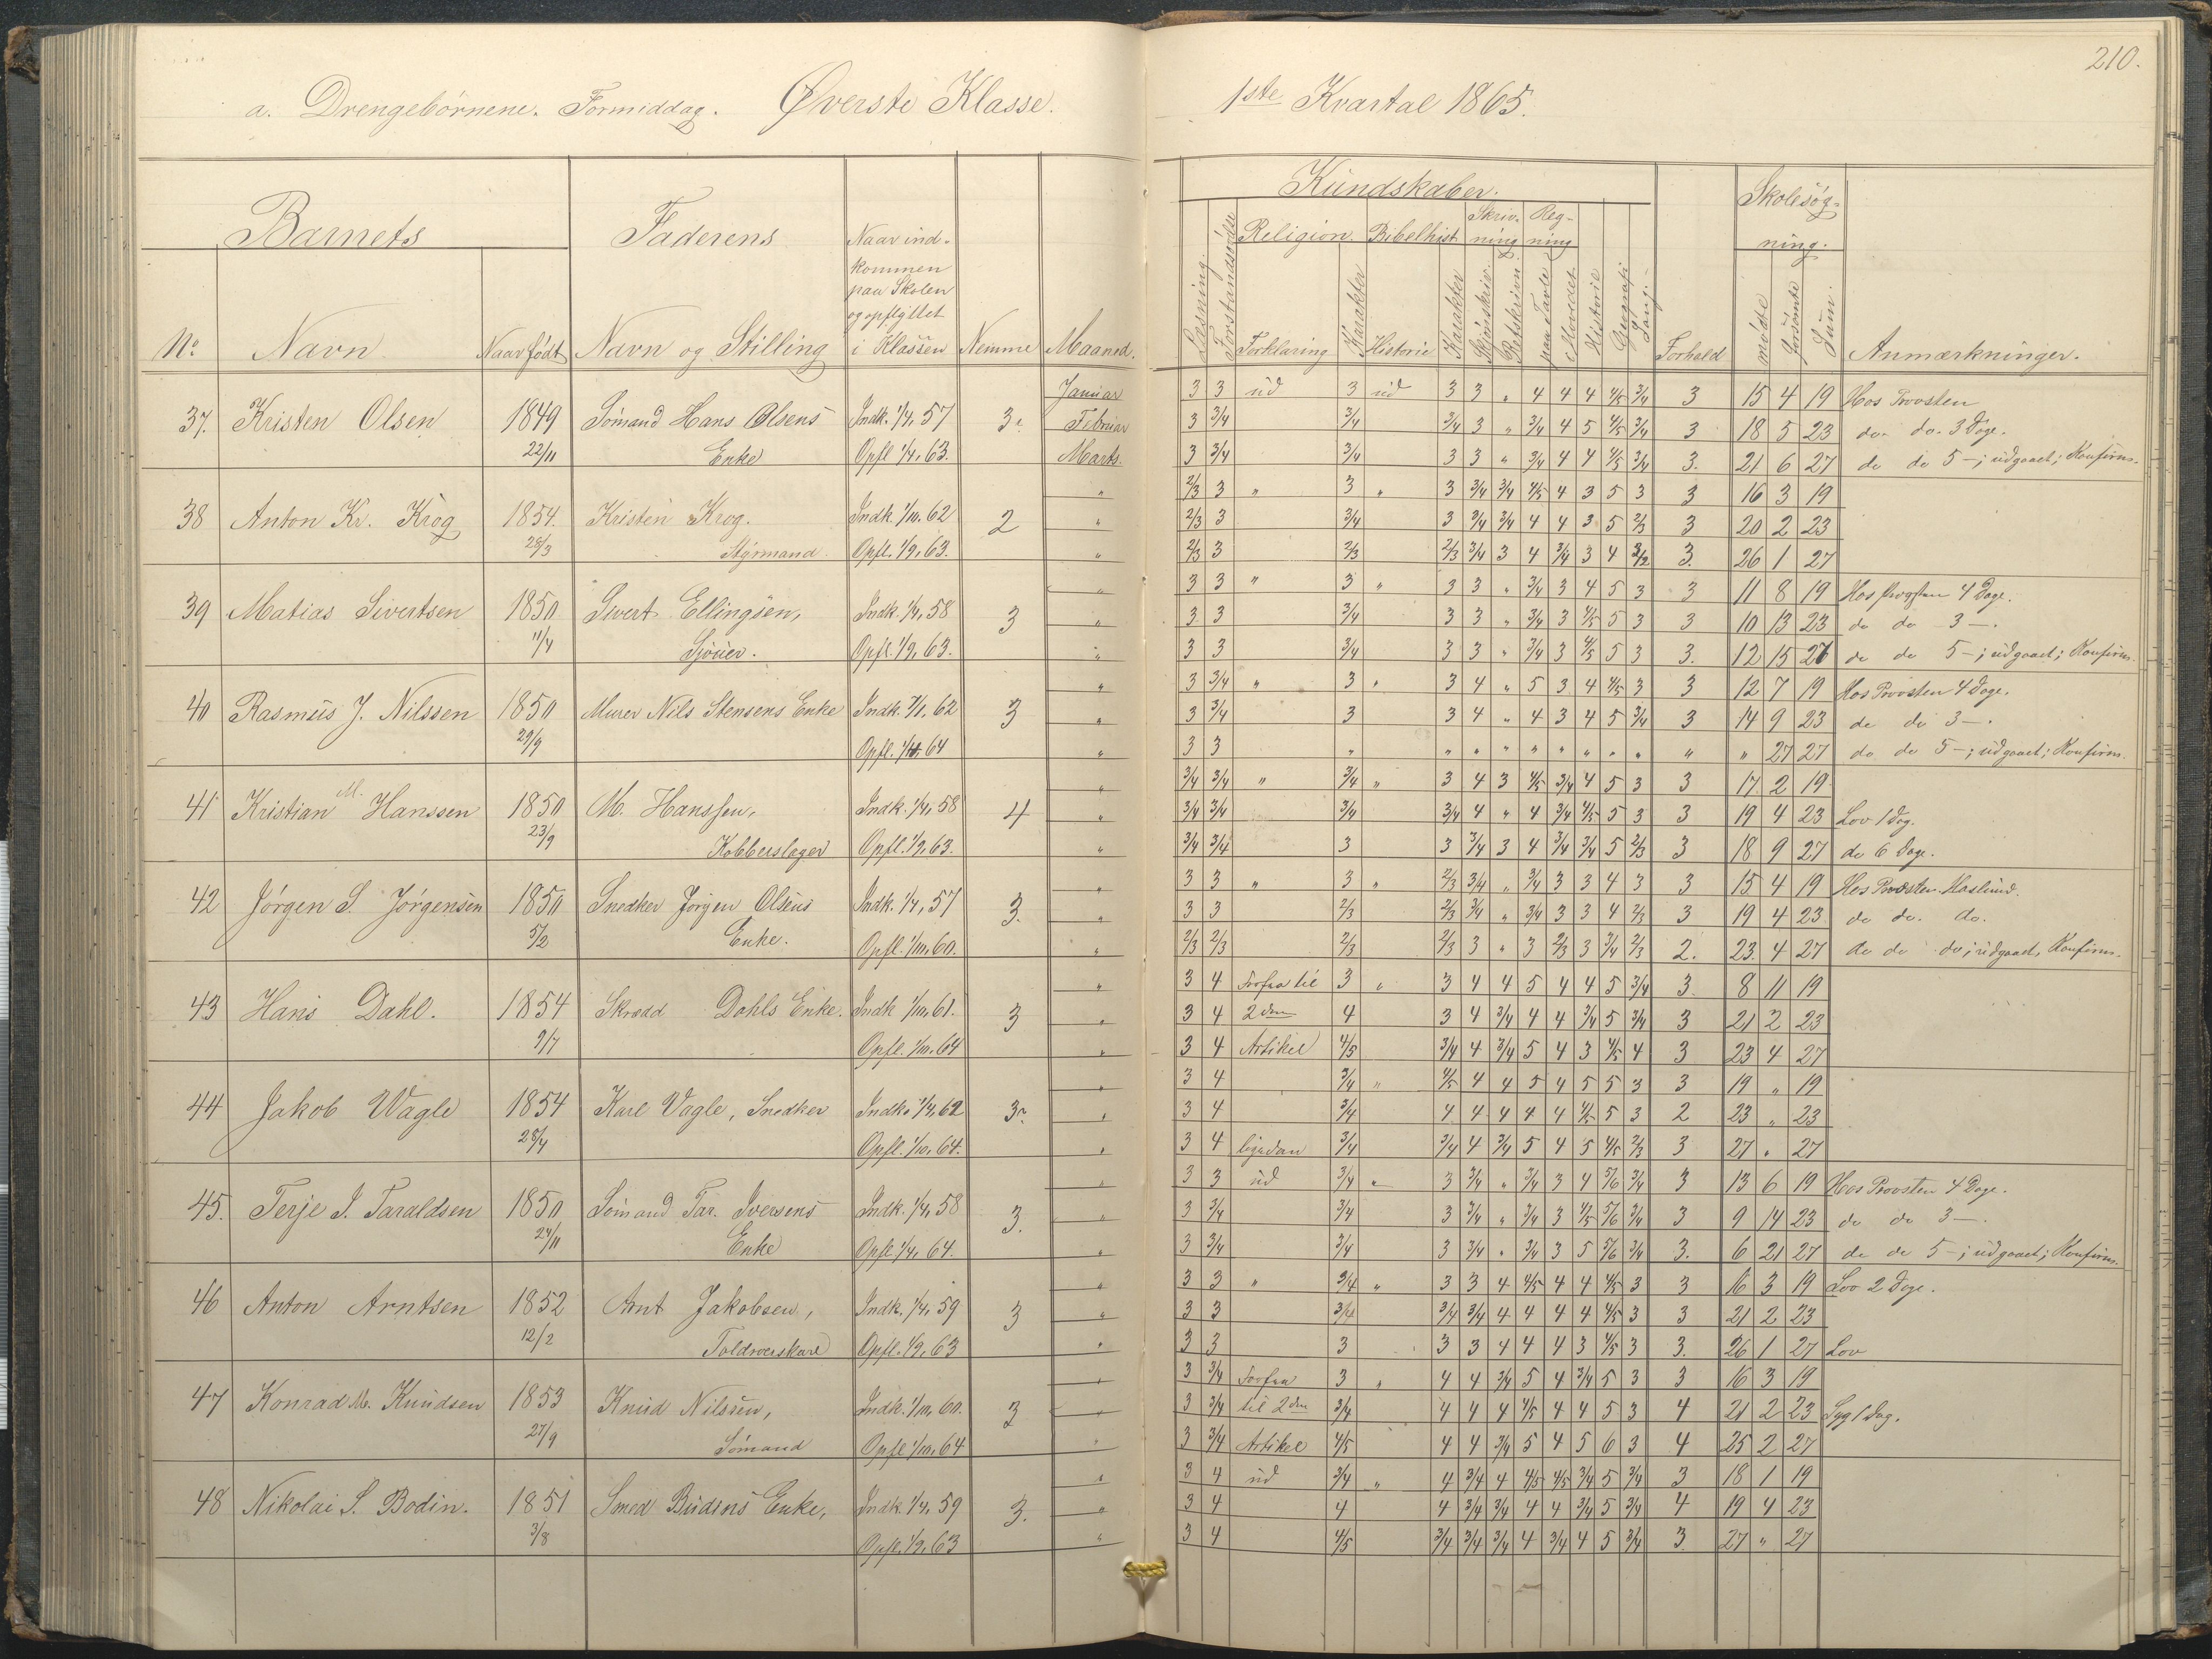 210.
a. Drengebörnene. Formiddag. Øverste Klasse. 1ste Kvartal 1865.
Barnets Faderens Naar ind-
kommen
paa Skolen
og opflyttet
i Klassen
No Navn Naar födt Navn og Stilling Nemme Maaned.
Kundskaber. Skolesög-
ning.
Religion. Bibelhist Skriv-
ning Reg-
ning
Læsning. Forstandsövelse Forklaring Karakter Historie Karakter Skjönskriv. Retskrivn. paa Tavle i Hovedet Historie Geografi Sang. Forhold mödte forsömte Sum. Anmærkninger.
Januar 3 3 ud 3 ud 3 3 " 4 4 4 4/5 3/4 3 15 4 19 Hos Provsten
37. Kristen Olsen 1849 Sömand Hans Olsens Indk. 1/4, 57 3. Februar 3 3/4 3/4 3/4 3 " 3/4 4 5 4/5 3/4 3 18 5 23 do. do. 3 Dage.
22/11 Enke Opfl 1/4, 63. Marts. 3 3/4 3/4 3 3 " 3/4 4 4 4/5 3/4 3. 21 6 27 do do 5 -; udgaaet; Konfirm.
" 2/3 3 " 3 " 3 3/4 3/4 4/5 4 3 5 3 3 16 3 19
38 Anton Kr. Krog 1854. Kristen Krog. Indk. 1/10. 62 2 " 2/3 3 3/4 3 3/4 3/4 4 4 3 5 2/3 3 20 2 23
28/3 Styrmand. Opfl. 1/9, 63. " 2/3 3 2/3 2/3 3/4 3 4 3/4 3 4 3/2 3. 26 1 27
" 3 3 " 3 " 3 3 " 3/4 3 4 5 3 3 11 8 19 Hos Provsten 4 Dage.
39 Matias Sivertsen 1850 Sivert Ellingsen, Indk. 1/4, 58 3 " 3 3 3/4 3 3 " 3/4 3 4/5 5 3 3 10 13 23 do do 3 -.
11/4 Opfl. 1/9, 63. " 3 3 3/4 3 3 " 3/4 3 4/5 5 3 3. 12 15 27 do do 5 -; udgaaet; Konfirm.
" 3 3/4 " 3 " 3 4 " 5 3 4 4/5 3 3 12 7 19 Hos Provsten 4 Dage.
40 Rasmus J. Nilssen 1850 Murer Nils Stensens Enke Indk. 62 3 " 3 3/4 3 3 4 " 4 3 4 5 3/4 3 14 9 23 do do 3 -.
29/9 Opfl. 64 " 3 3 " " " " " " " " " " " 27 27 do do 5 -; udgaaet; Konfirm.
" 3/4 3/4 " 3/4 " 3 4 3 4/5 3/4 4 5 3 3 17 2 19
41 Kristian M. Hanssen 1850 M. Hanssen, Indk. 1/4, 58 4 " 3/4 3/4 3/4 3/4 4 " 4 3/4 4/5 5 3 3 19 4 23 Lov 1 Dag.
23/9 Kobberslager Opfl. 1/9, 63. " 3/4 3/4 3 3 3/4 3 4 3/4 3/4 5 2/3 3 18 9 27 do 6 Dage.
" 3 3 " 3 " 2/3 3/4 " 3/4 3 3 4 3 3 15 4 19 Hos Provsten Haslund.
42 Jörgen S. Jörgensen 1850 Snedker Jörgen Olsens Indk. 1/4, 57 3. " 3 3 2/3 2/3 3/4 " 3/4 3 3 4 2/3 3 19 4 23 do do. do.
5/2 Enke. Opfl. 1/10, 60. " 2/3 2/3 2/3 2/3 3 " 3 2/3 3 3/4 2/3 2. 23. 4 27 do do do; udgaaet, Konfirm.
" 3 4 Forfra til 3 " 3 4 4 5 4 4 5 3/4 3. 8 11 19
43 Hans Dahl. 1854 Skrædd Dahls Enke. Indk 1/10, 61. 3 " 3 4 2den 4 3 4 3/4 4 4 3/4 5 3/4 3 21 2 23
9/7 Opfl. 1/10. 64 " 3 4 Artikel 4/5 3/4 4 3/4 5 4 3 4/5 4 3 23 4 27
" 3 4 3/4 " 4/5 4 4 5 4 5 5 3 3 19 " 19
44 Jakob Vagle 1854 Karl Vagle, Snedker Indk. 1/4, 62 3. " 3 4 3/4 4 4 4 4 4 4/5 5 3 2 23 " 23
28/4 Opfl. 1/10, 64. " 3 4 ligedan 3/4 3/4 4 3/4 5 4 5 4/5 2/3 3 27 " 27
" 3 3 ud 3/4 " 3 3/4 " 3/4 3 4 5/6 3/4 3 13 6 19 Hos Provsten 4 Dage.
45. Terje J. Taraldsen 1850 Sömand Tar. Iversens Indk. 1/4, 58 3. " 3 3/4 3/4 3 3/4 " 3/4 3 4/5 5/6 3/4 3 9 14 23 do do 3 -.
24/11 Enke Opfl 1/4, 64. " 3 3/4 3/4 3 3/4 " 3/4 3 5 5/6 3/4 3. 6 21 27 do do 5 -; udgaaet; Konfirm.
" 3 3 " 3/4 " 3 3 4 4/5 4 4 4/5 3 3 16 3 19 Lov 2 Dage.
46 Anton Arntsen 1852 Arnt Jakobsen, Indk. 1/4, 59 3 " 3 3 3/4 3/4 3/4 4 4 4 4 4/5 3 3 21 2 23
12/2 Opfl. 1/9, 63 " 3 3 3 3 3 4 4 4 3 4/5 3 3. 26 1 27 Lov
" 3 3/4 Forfra 3 " 4 4 3/4 5 4 3/4 5 3 3 16 3 19
47 Konrad M. Knudsen 1853 Knud Nilssen, Indk. 1/10, 60. 3 " 3 3/4 til 2den 3/4 4 4 4 4/5 4 4 5 3 4 21 2 23 Syg 1 Dag.
27/9 Sömand Opfl 1/10, 64 " 3 3/4 Artikel 4/5 4 4 3/4 5 4 5 6 3 4 25 2 27
" 3 4 ud 3/4 " 4 3/4 4 4/5 4/5 3/4 5 3/4 3 18 1 19
48 Nikolai S. Bodin. 1851 Smed Budins Enke, Indk. 1/4, 59 3. " 3 4 4 4 3/4 3/4 4 4 3/4 5 3/4 4 19 4 23
3/8 Opfl. 1/9, 63 " 3 4 4/5 3/4 3/4 3/4 4 3/4 4 5 3/4 3. 27 " 27